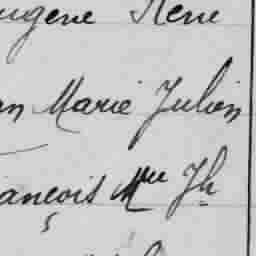 ugène René
an Marie Julien
ançois Mie Jh